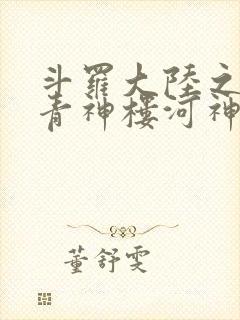 斗羅大陸之
青神樓河神
董舒雯